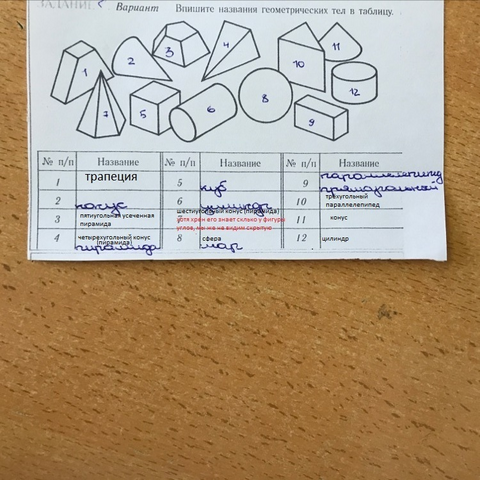 ЗАДАНИЕ
Вариант Впишите названия геометрических тел в таблицу.
1
2
3
4
11
10
12
5
6
8
7
9
№ п/п Название № п/п Название № п/п Название
1 трапеция 5 куб 9 параллелепипед прямоугольный
2 конус 6 цилиндр 10 трехугольный параллелепипед
3 пятиугольная усеченная пирамида 7 шестиугольный конус (пирамида) 11 конус
хотя хрен его знает сколько у фигуры углов, мы же не видим скрытую
4 четырехугольный конус (пирамида) 8 сфера 12 цилиндр
пирамида шар